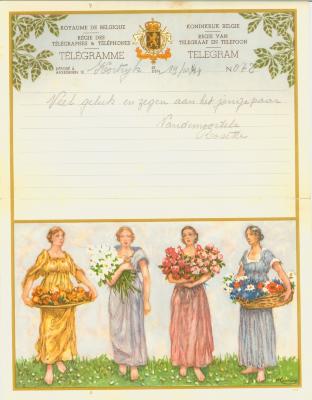 ROYAUME DE BELGIQUE
RÉGIE DES
TÉLÉGRAPHES & TÉLÉPHONES
TÉLÉGRAMME
KONINKLIJK BELGIE
REGIE VAN
TELEGRAAF EN TELEFOON
TELEGRAM
DÉPOSÉ À
Kortrijk
N 072
Veel geluk en zegen aan het jonge paar
Vandemoortele